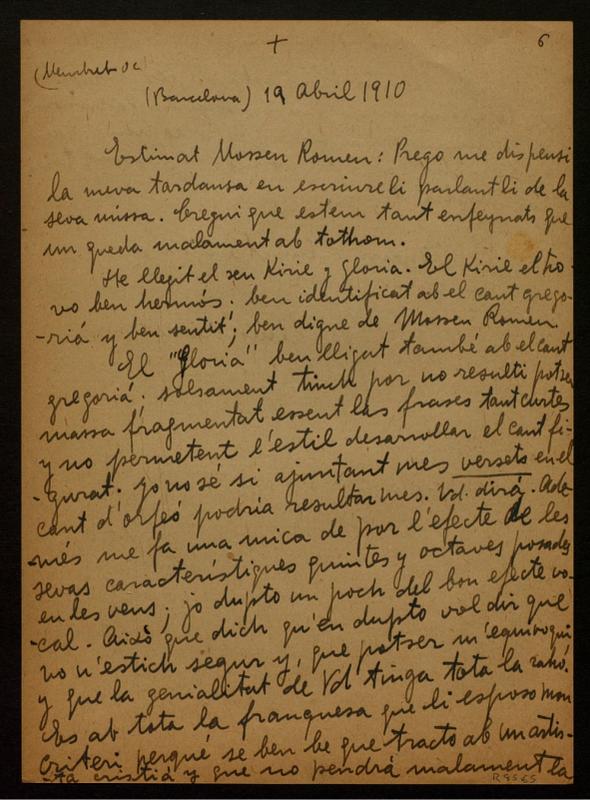 +
6
(Barcelona) 19 Abril 1910
Estimat Mossen Romeu: Prego me dispensi
la meva tardansa en escriureli parlantli de la
seva missa. Cregui que estem tant enfeynats que
un queda malament ab tothom.
He llegit el seu Kirie y Gloria. El Kirie el tro-
vo ben hermós: ben identificat ab el cant grego-
-riá y ben sentit; ben digne de Mossen Romeu
El "Gloria" ben lligat també ab el cant
gregoriá. solsament tinch por no resulti potser
massa fragmentat essent las frases tant curtes
y no permetent l'estil desarrollar el cant fi-
-gurat. Jo no sé si ajuntant mes versets en el
cant d'orfeó podria resultar mes. Vd. dirá. Ade-
-més me fa una mica de por l'efecte de les
sevas característiques quintes y octaves posades
en les veus; jo dupto un poch del bon efecte vo-
-cal. Aixó que dich qu'en dupto vol dir que
no n'estich segur y, que potser m'equivoqui
y que la genialitat de Vd tinga tota la rahó.
Es ab tota la franquesa que li esposo mon
criteri perqué se ben be que tracto ab un artis-
-ta cristiá y que no pendrá malament la
R 9565